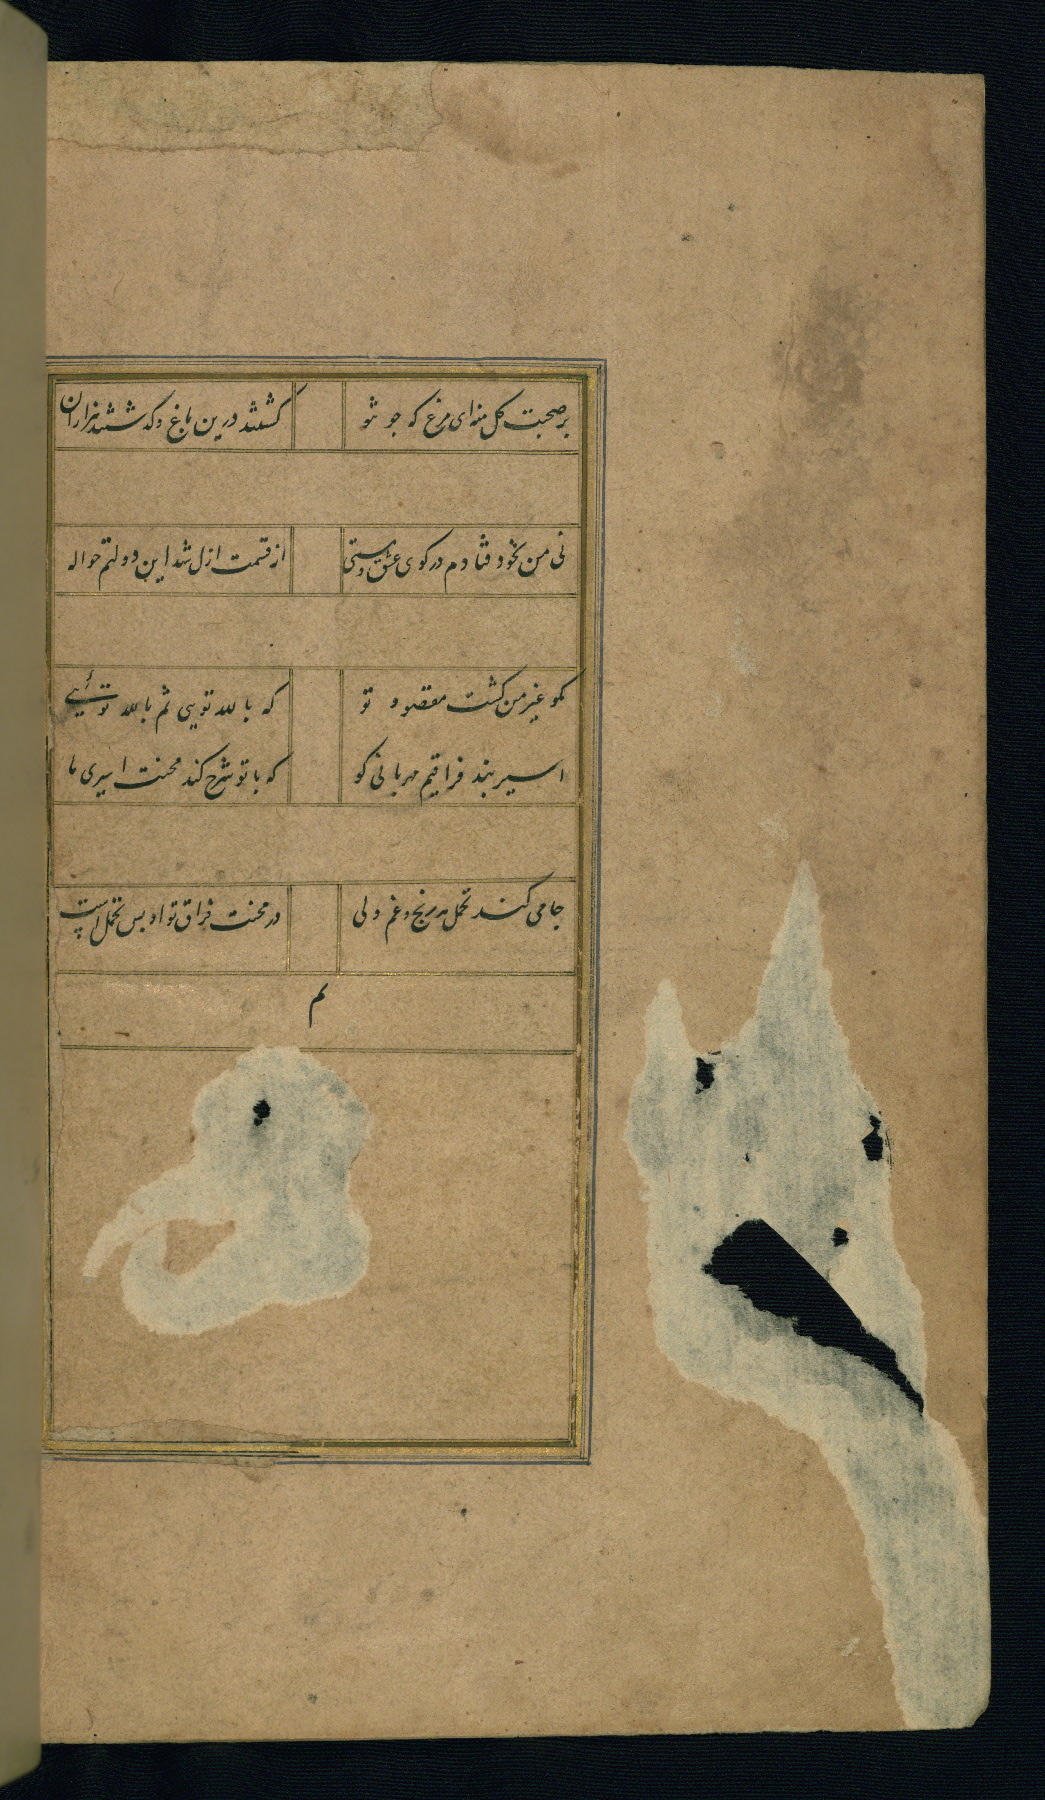 بر صحبت گل منه ای مرغ که چو تو
گشتند درین باغ و گذشتند هزاران
نی من بخود فتادم در کوی عشق و مستی
از قسمت ازل شد این دولتم حواله
مگو غیر من کیست مقصود تو
که بالله تویی ثم بالله تویی
اسیر بند فراقیم مهربانی کو
که با تو شرح کند محنت اسیری ما
جامی کند تحمل هر رنج و غم ولی
در محنت فراق تو او بس تحمل است
م